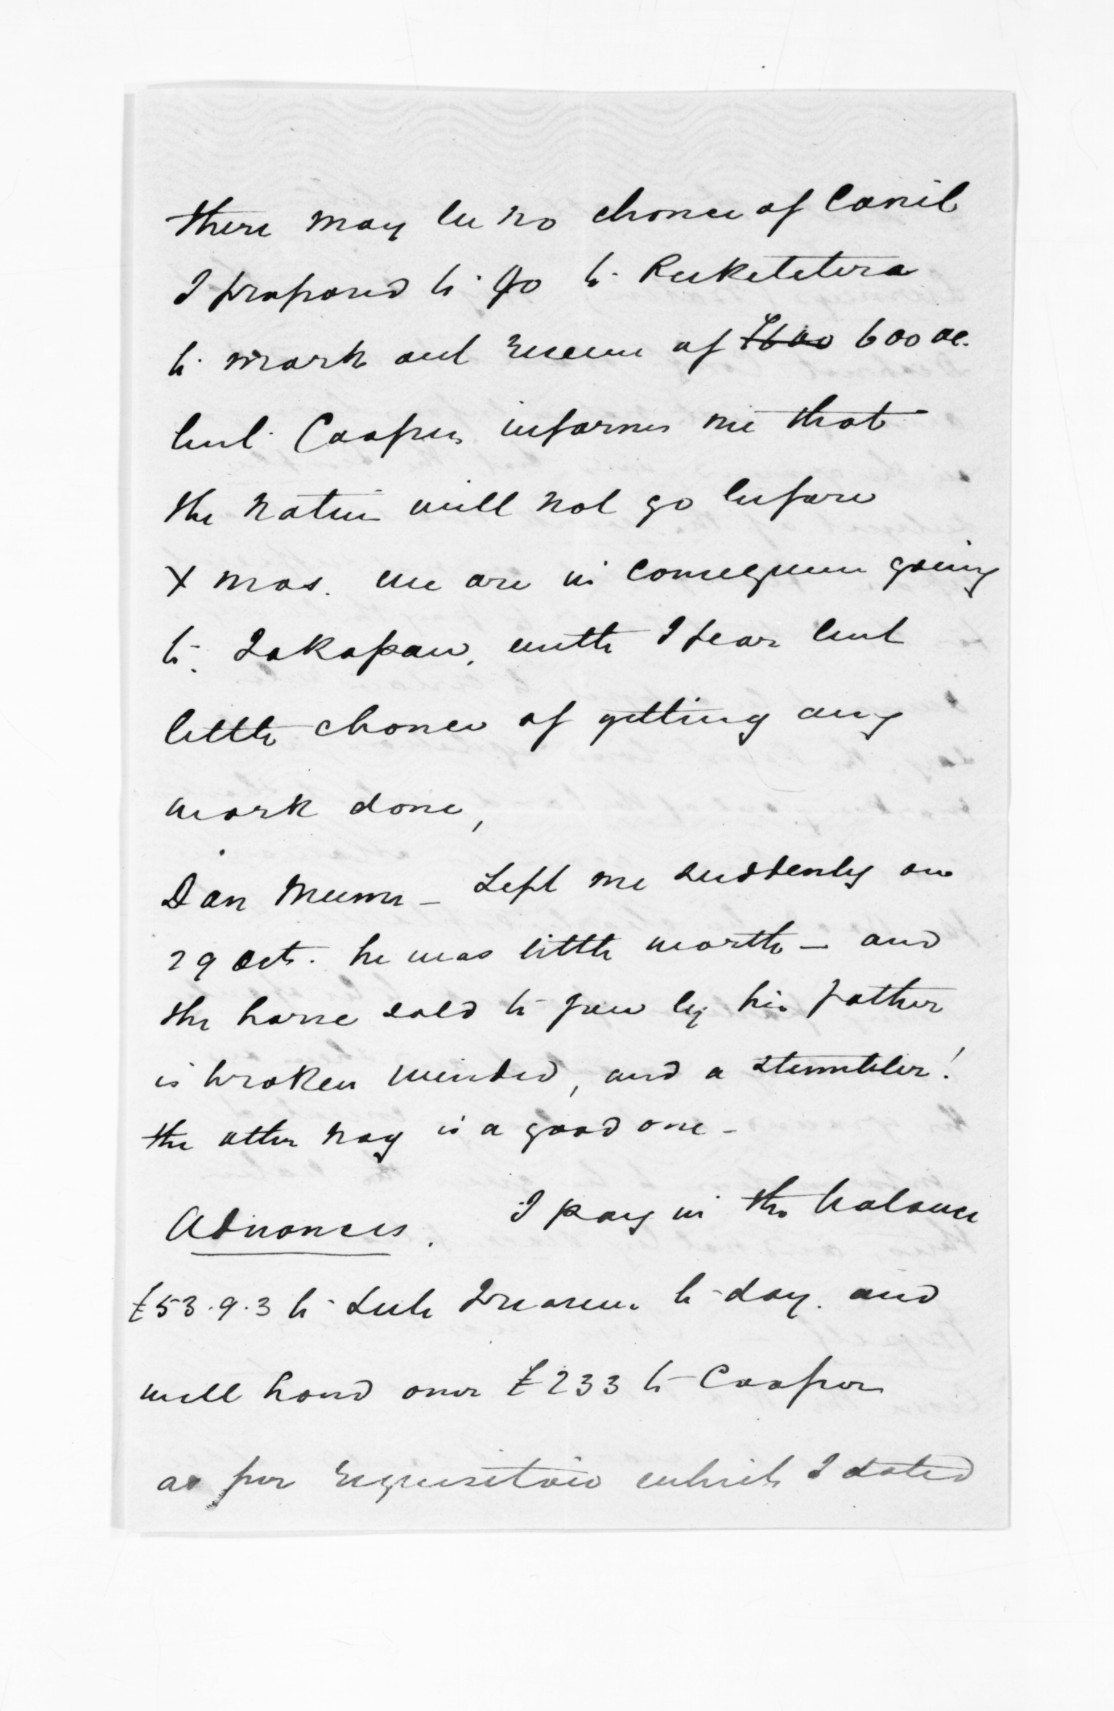 there may be no chance of Cavil
I proposed to go to Ruketetera
to mark out reserve of £600 600 ac.
but Cooper informs me that
the native will not go before
X mas. we are in consequence going
to Takapau, with I fear but
little chance of getting any
work done,
Dan Munn - Left me suddenly on
29 Oct. he was little worth - and
the horse sold to you by his father
is broken winded, and a stumbler!
the other nag is a good one -
Advances. I pay in the balance
£53.9.3 to Sub Treasury to-day. and
will hand over £233 to Cooper
as per requisition which I dated